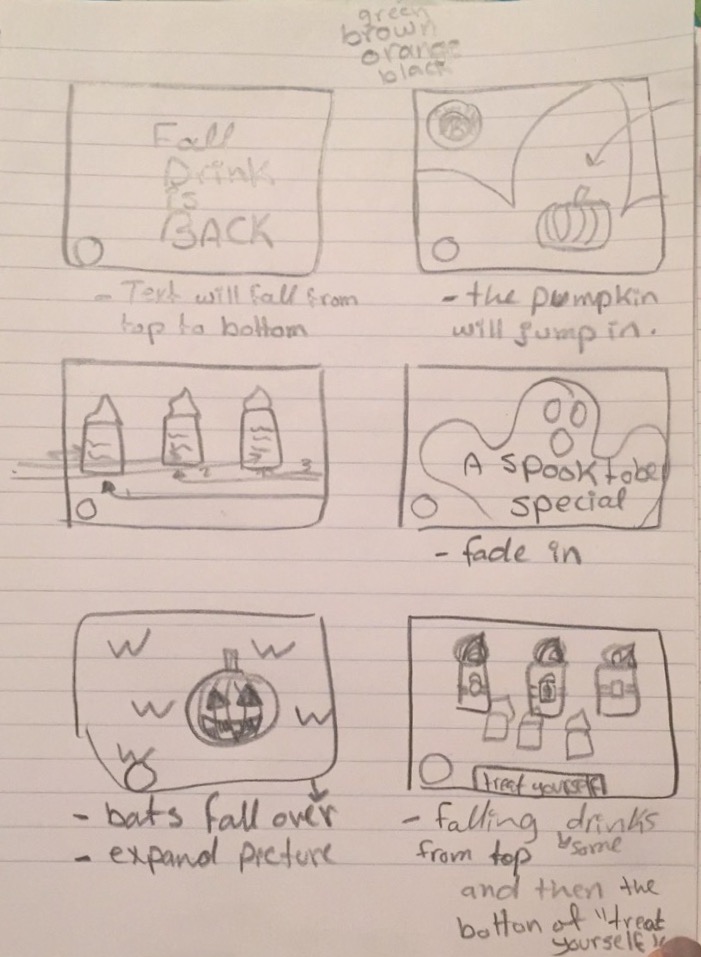 green
brown
orange
black
Fall
Drink
is
BACK
- Text will fall from
top to bottom
- the pumpkin
will jump in.
2
3
A Spooktober
special
- fade in
W
W
W
W
W
treat yourself
- bats fall over
- expand picture
- falling drinks
from top some
and then the
botton of "treat
yourself"